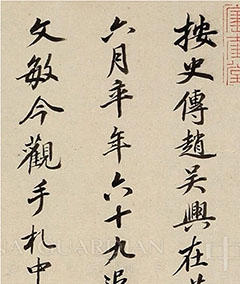 按史傳趙吳興在
六月卒年六十九追
文敏今觀手札中